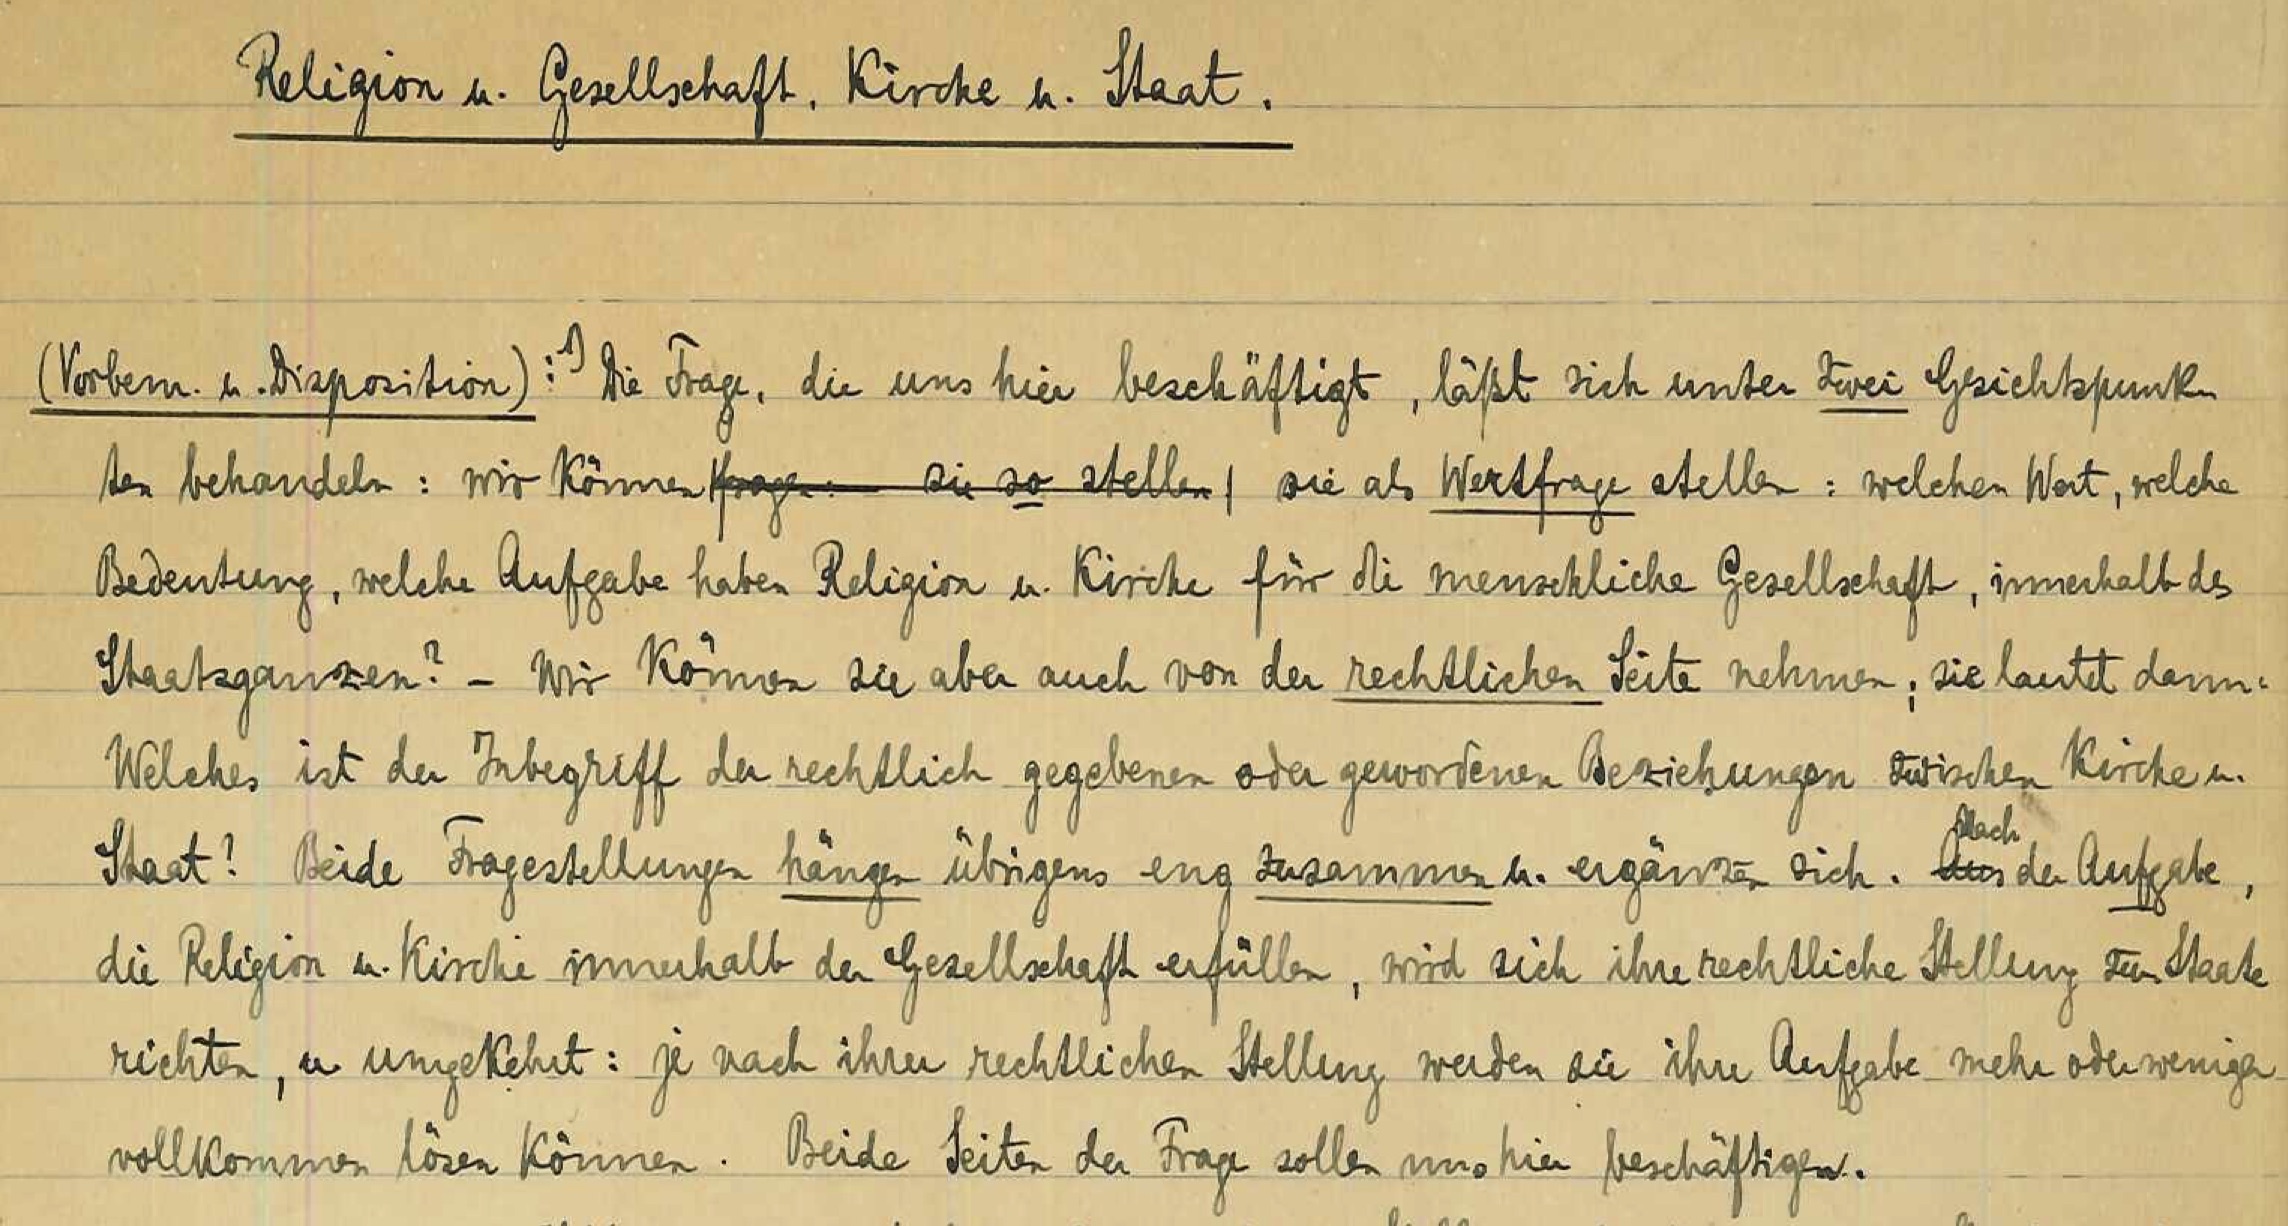 Religion u. Gesellschaft. Kirche u. Staat.
(Vorbem. u. Disposition):¹) Die Frage, die uns hier beschäftigt, läßt sich unter zwei Gesichtspunk-
ten behandeln: wir können |fragen: sie so stellen| sie als Wertfrage stellen: welchen Wert, welche
Bedeutung, welche Aufgabe haben Religion u. Kirche für die menschliche Gesellschaft, innerhalb des
Staatsganzen? – Wir können sie aber auch von der rechtlichen Seite nehmen; sie lautet dann:
Welches ist der Inbegriff der rechtlich gegebenen oder gewordenen Beziehungen zwischen Kirche u.
Staat? Beide Fragestellungen hängen übrigens eng zusammen u. ergänzen sich. Aus Nach der Aufgabe,
die Religion u. Kirche innerhalb der Gesellschaft erfüllen, wird sich ihre rechtliche Stellung zum Staate
richten, u umgekehrt: je nach ihrer rechtlichen Stellung werden sie ihre Aufgabe mehr oder weniger
vollkommen lösen können. Beide Seiten der Frage sollen uns hier beschäftigen.